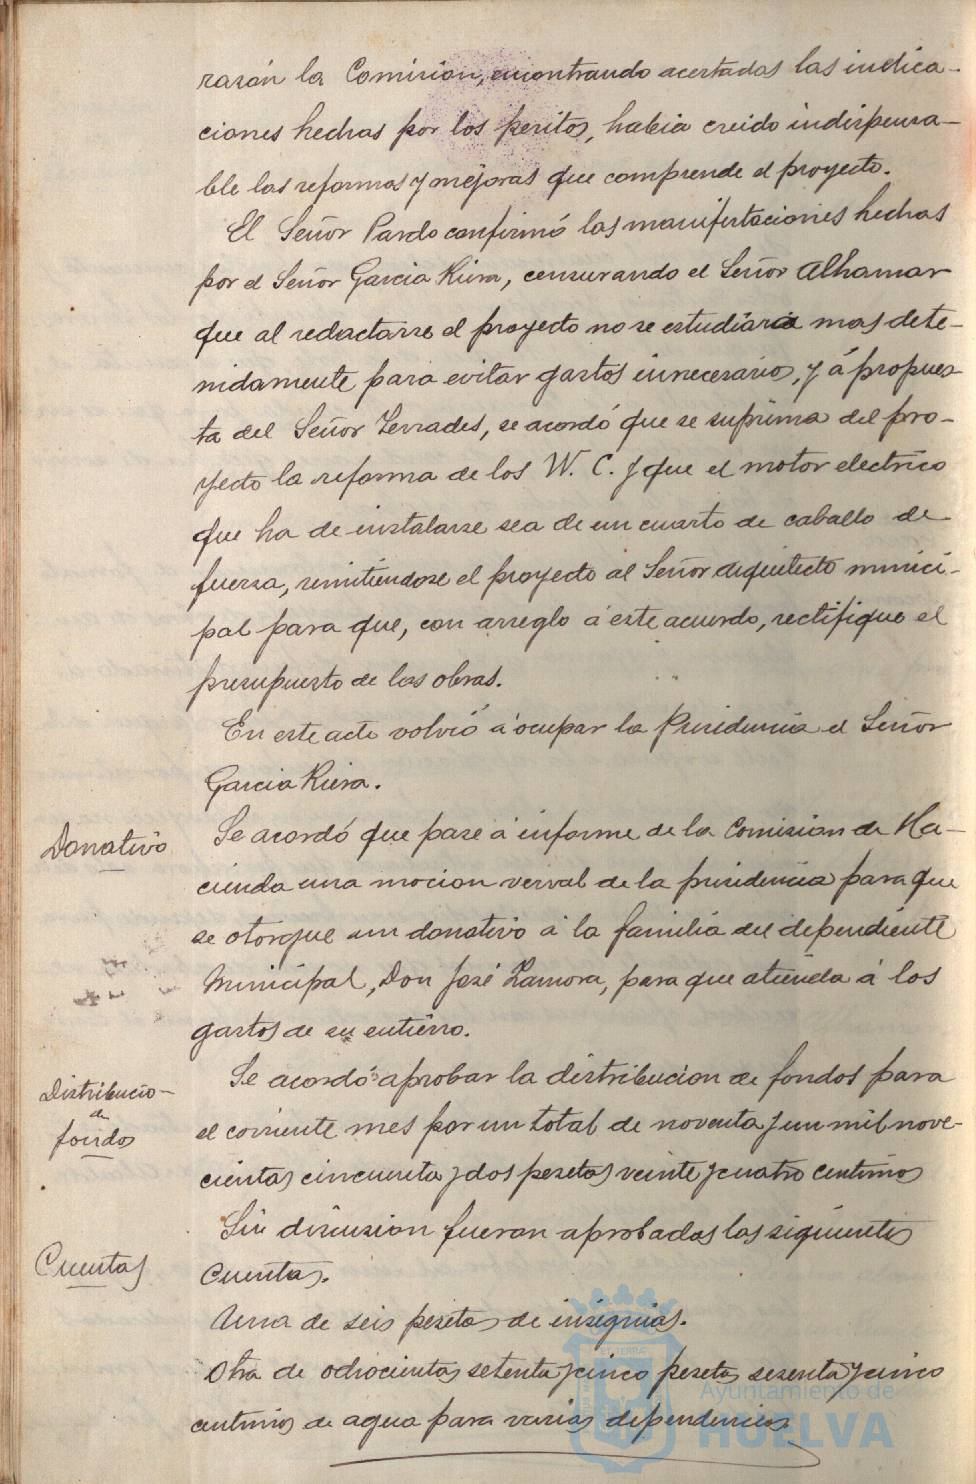 razón la Comision, encontrando acertadas las indica-
ciones hechas por los peritos, habia creido indispensa-
ble las reformas y mejoras que comprende el proyecto.
El Señor Pardo confirmó las manifestaciones hechas
por el Señor Garcia Riera, censurando el Señor Alhamar
que al redactarse el proyecto no se estudiara mas dete-
nidamente para evitar gastos innecesarios, y á propues-
ta del Señor Terrades, se acordó que se suprima del pro-
yecto la reforma de los W. C. y que el motor electrico
que ha de instalarse sea de un cuarto de caballo de
fuerza, remitiendose el proyecto al Señor Arquitecto munici-
pal para que, con arreglo á este acuerdo, rectifique el
presupuesto de las obras.
En este acto volvió á ocupar la Presidencia el Señor
Garcia Riera.
Donativo
Se acordó que pase á informe de la Comision de Ha-
cienda una mocion verval de la presidencia para que
se otorgue un donativo á la familia del dependiente
Municipal, Don José Zamora, para que atienda á los
gastos de su entierro.
Distribucio-
de
fondos
Se acordó aprobar la distribucion de fondos para
el corriente mes por un total de noventa y un mil nove-
cientas cincuenta y dos pesetas veinte y cuatro centimos
Cuentas
Sin discusion fueron aprobadas las siguientes
Cuentas.
Una de seis pesetas de insignias.
Otra de ochocientas setenta y cinco pesetas sesenta y cinco
centimos de agua para varias dependencias.
Ayuntamiento de
HUELVA